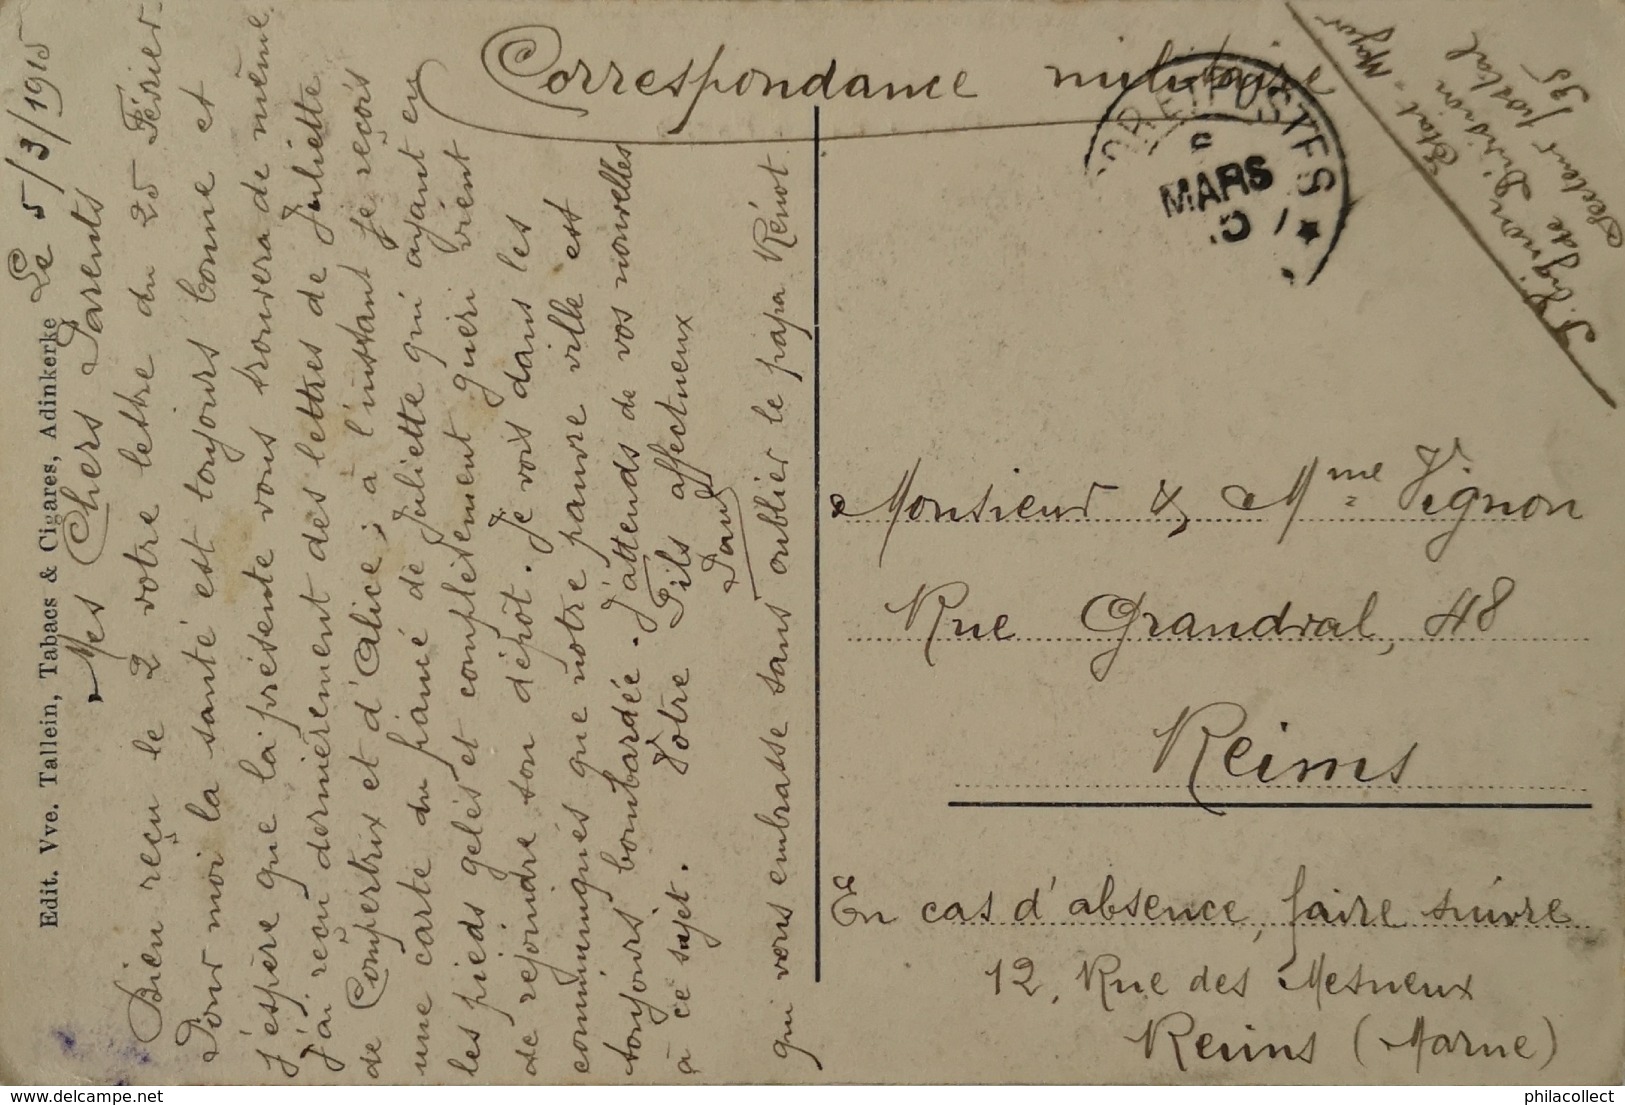 Correspondance militaire
TRÉSOR ET POSTES
MARS
P. Vignon
État-Major
de Division
Secteur Postal
135
Edit. Vve. Tallein, Tabacs & Cigares, Adinkerke
Le 5/3/1915
Mes Chers Parents
Bien reçu le 2 votre lettre du 25 Février
Pour moi la santé est toujours bonne et
j'espère que la présente vous trouvera de même
J'ai reçu dernièrement des lettres de Juliette
de Compertrix et d'Alice ; à l'instant je reçois
une carte du fiancé de Juliette qui ayant eu
les pieds gelés et complètement guéri vient
de rejoindre son dépôt. Je vois dans les
communiqués que notre pauvre ville est
toujours bombardée. J'attends de vos nouvelles
à ce sujet. Votre Fils affectueux
Paul
qui vous embrasse sans oublier le papa Rénot
Monsieur & Mme Vignon
Rue Grandval, 48
Reims
En cas d'absence, faire suivre
12, Rue des Mesneux
Reims (Marne)
delcampe.net
philacollect